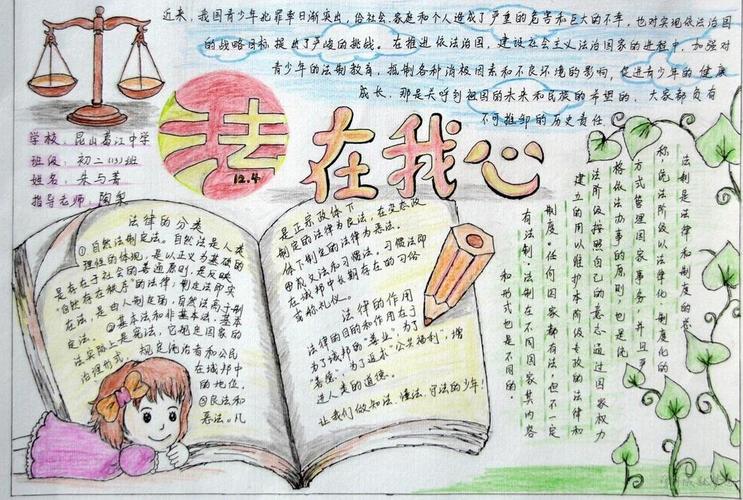 近来,我国青少年犯罪率日渐突出,给社会、家庭和个人造成了严重的危害和巨大的不幸,也对实现依法治国
的战略目标提出了严峻的挑战。在推进依法治国,建设社会主义法治国家的进程中,加强对
青少年的法制教育,抵制各种消极因素和不良环境的影响,促进青少年的健康
成长,那是关乎到祖国的未来和民族的希望的,大家都负有
不可推卸的历史责任
法在我心
12.4
学校:昆山葛江中学
班级:初二(13)班
姓名:朱与菁
指导老师:陶
法律的分类
①自然法制定法。自然法是人类
理性的体现,是以正义为基础的
是存在于社会的普通原则,是反映
“自然存在秩序”的法律;制定法即实
在法,是由人制定的,自然法高于制
定法。②基本法和非基本法。基本
法实际上是宪法,它规定国家的
治理形式,规定统治者和公民
在城邦中
的地位。
③良法和
恶法。凡
是正宗政体下
制定的法律为良法,在变态政
体下制定的法律为恶法。
④成文法和习惯法。习惯法即
在城邦中长期存在的习俗
或称礼仪。
法律的作用
法律的目的和作用在于
为了城邦的“善业”,为了
“善德”,为了近求“公共福利”,增
进人类的道德。
让我们做知法、懂法、守法的少年!
法制是法律和制度的总
称,统治阶级以法律化、制度化的
方式管理国家事务,并且严
格依法办事的原则,也是统
治阶级按照自己的意志通过国家权力
建立的用以维护本阶级专政的法律和
制度。任何国家都有法,但不一定
有法制。法制在不同国家其内容
和形式也是不同的。